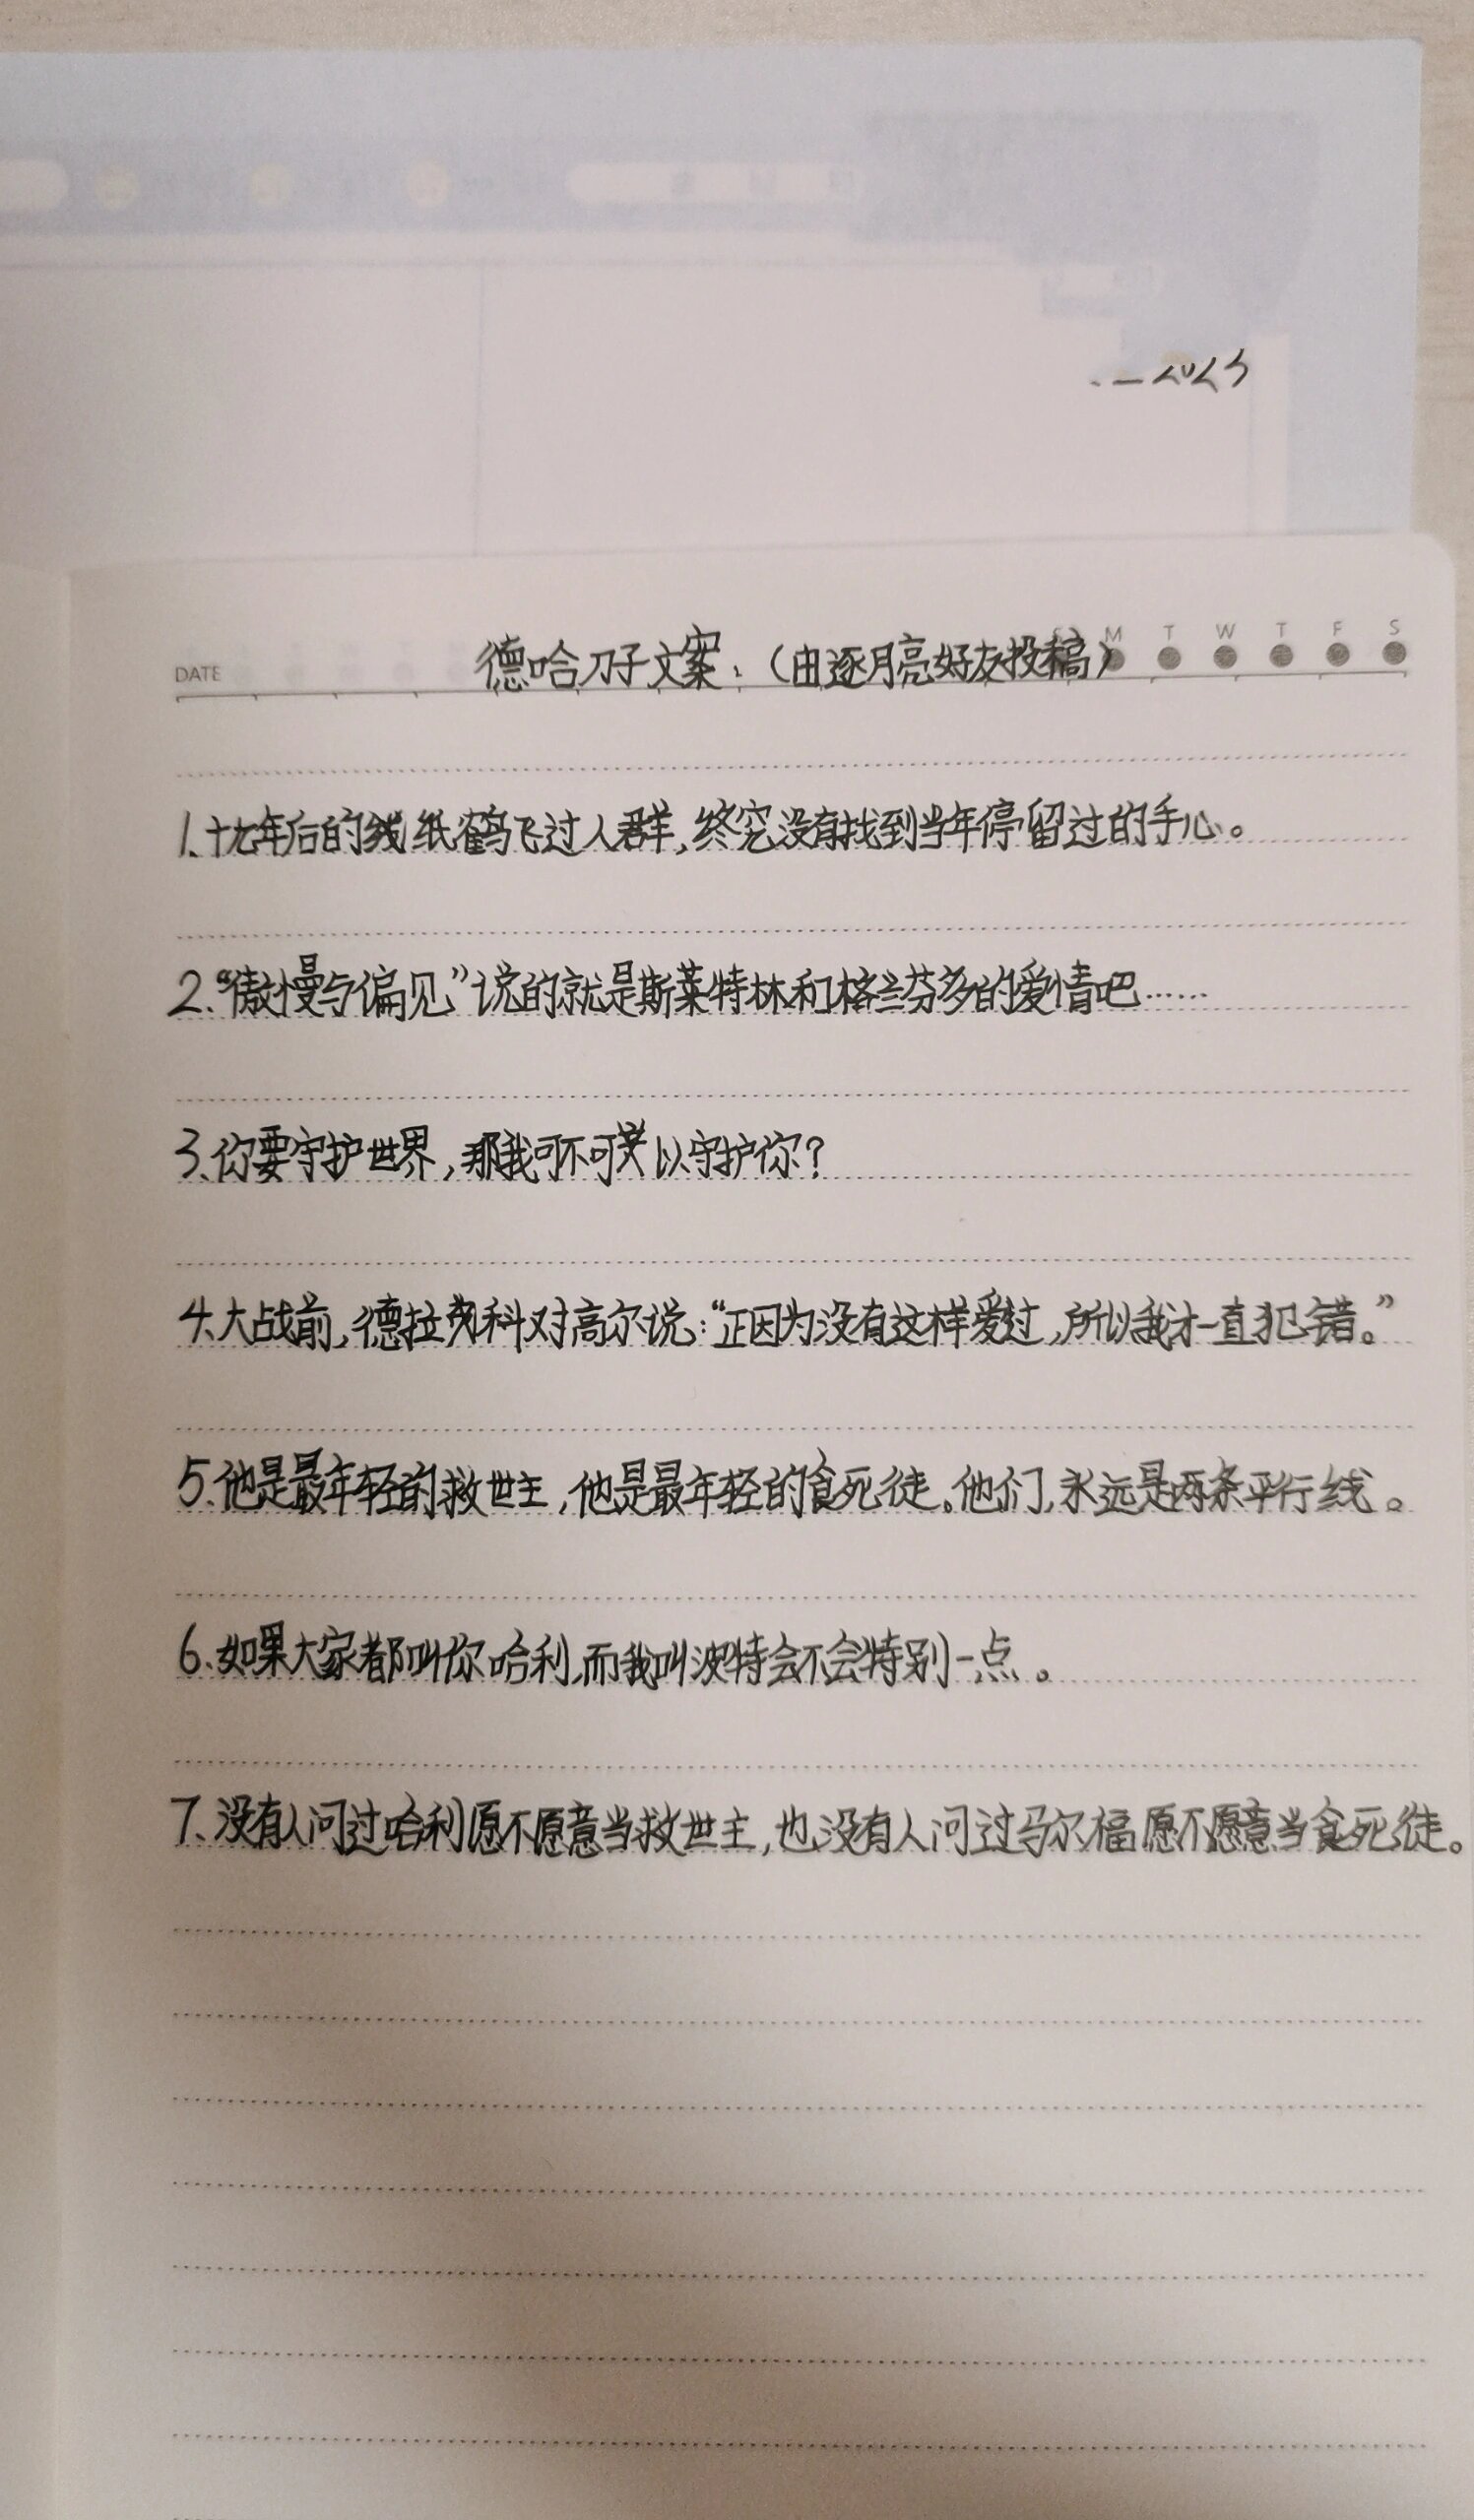 2023
S M T W T F S
DATE
德哈刀子文案:(由逐月亮好友投稿)
1.十九年后的纸鹤飞过人群,终究没有找到当年停留过的手心。
2.“傲慢与偏见”说的就是斯莱特林和格兰芬多的爱情吧……
3.你要守护世界,那我可不可以守护你?
4.大战前,德拉科对高尔说:“正因为没有这样爱过,所以我才一直犯错。”
5.他是最年轻的救世主,他是最年轻的食死徒。他们,永远是两条平行线。
6.如果大家都叫你哈利,而我叫波特会不会特别一点。
7.没有人问过哈利愿不愿意当救世主,也没有人问过马尔福愿不愿意当食死徒。